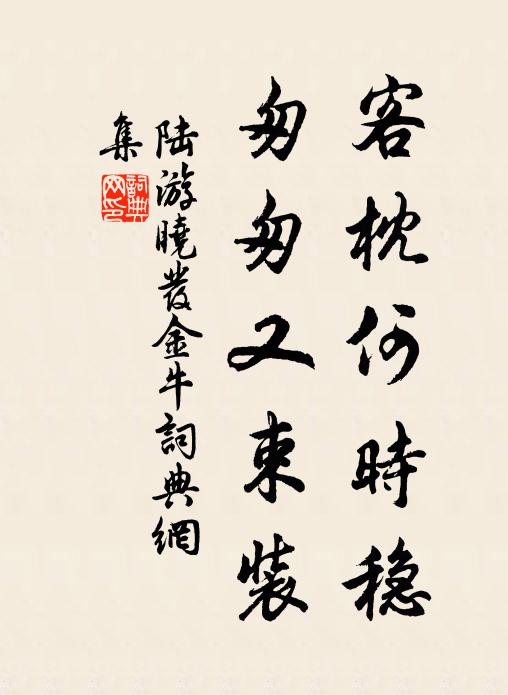 客枕何時穏
匆匆又束裝
陸游曉發金牛詞典網
集
詞典
网印